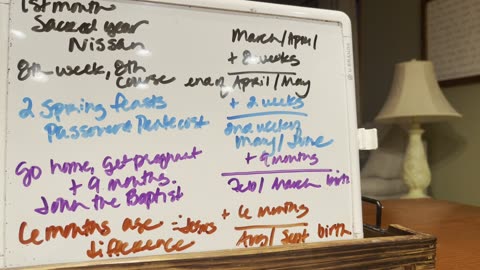 1st month
Sacred year
Nissan
8th week, 8th
course
2 Spring feasts
Passover Pentecost
Go home, get pregnant
+ 9 months.
John the Baptist
6 months age
difference
= Jesus
March/April
+ 8 weeks
end April/May
+ 2 weeks
2nd week
May/June
+ 9 months
Feb/March birth
+ 6 months
Aug/Sept birth